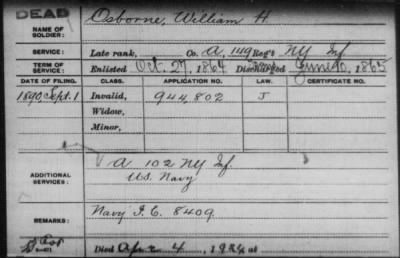 DEAD
NAME OF SOLDIER: Osborne, William H.
SERVICE: Late rank, Co. A, 149 Reg't NY Inf
TERM OF SERVICE: Enlisted Oct. 27, 1864 Discharged June 10, 1865
DATE OF FILING. CLASS. APPLICATION NO. LAW. CERTIFICATE NO.
1890, Sept. 1 Invalid, 944,802 J
Widow,
Minor,
ADDITIONAL SERVICES: A 102 NY Inf.
U.S. Navy
REMARKS: Navy I.C. 8409
Died 4, 1924 at